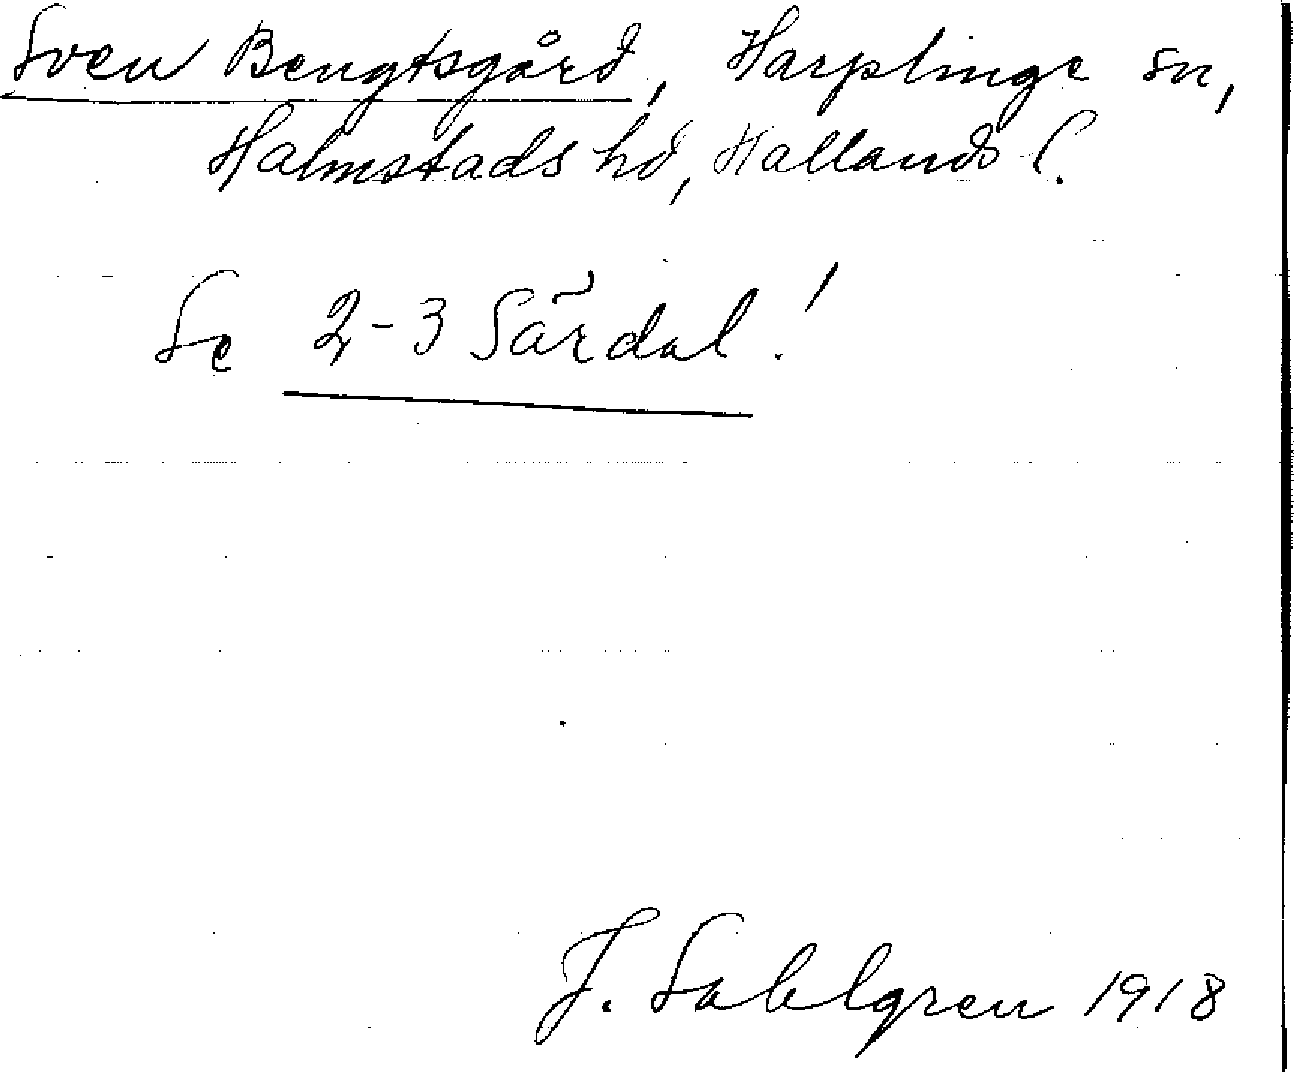 Sven Bengtsgård, Harplinge sn,
Halmstads hd, Hallands l.
Se 2-3 Särdal!
J. Sahlgren 1918